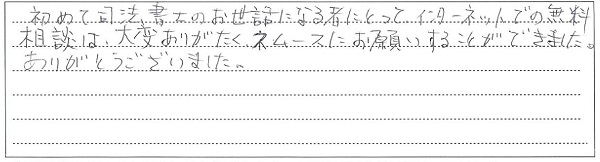 初めて司法書士のお世話になる者にとって インターネットでの無料
相談は、大変ありがたく、スムースにお願いすることができました。
ありがとうございました。